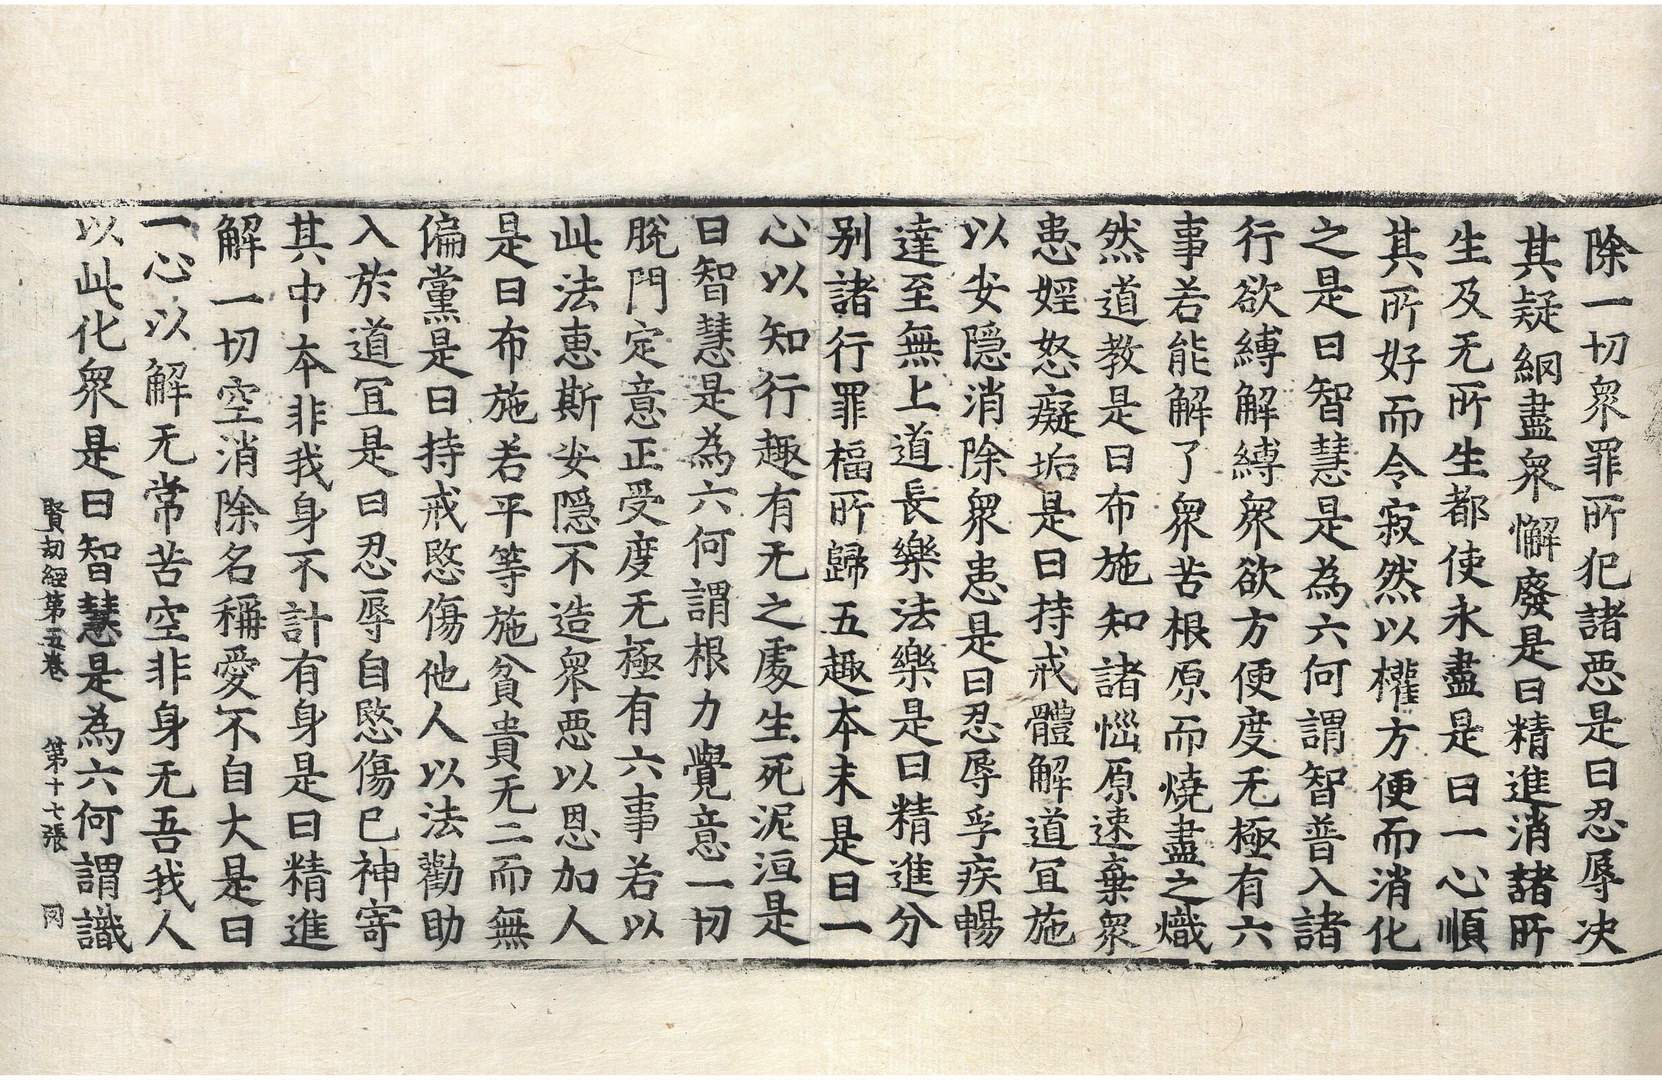 除一切衆罪所犯諸惡是曰忍辱決
其疑網盡衆懈廢是曰精進消諸所
生及无所生都使永盡是曰一心順
其所好而令寂然以權方便而消化
之是曰智慧是為六何謂智普入諸
行欲縛解縛衆欲方便度无極有六
事若能解了衆苦根原而燒盡之熾
然道教是曰布施知諸惱原速棄衆
患婬怒癡垢是曰持戒體解道宜施
以安隱消除衆患是曰忍辱孚疾暢
達至無上道長樂法樂是曰精進分
別諸行罪福所歸五趣本末是曰一
心以知行趣有无之處生死泥洹是
曰智慧是為六何謂根力覺意一切
脫門定意正受度无極有六事若以
此法惠斯安隱不造衆惡以恩加人
是曰布施若平等施貧貴无二而無
偏黨是曰持戒愍傷他人以法勸助
入於道宜是曰忍辱自愍傷已神寄
其中本非我身不計有身是曰精進
解一切空消除名稱愛不自大是曰
一心以解无常苦空非身无吾我人
以此化衆是曰智慧是為六何謂識
賢劫經第五卷 第十七張 罔